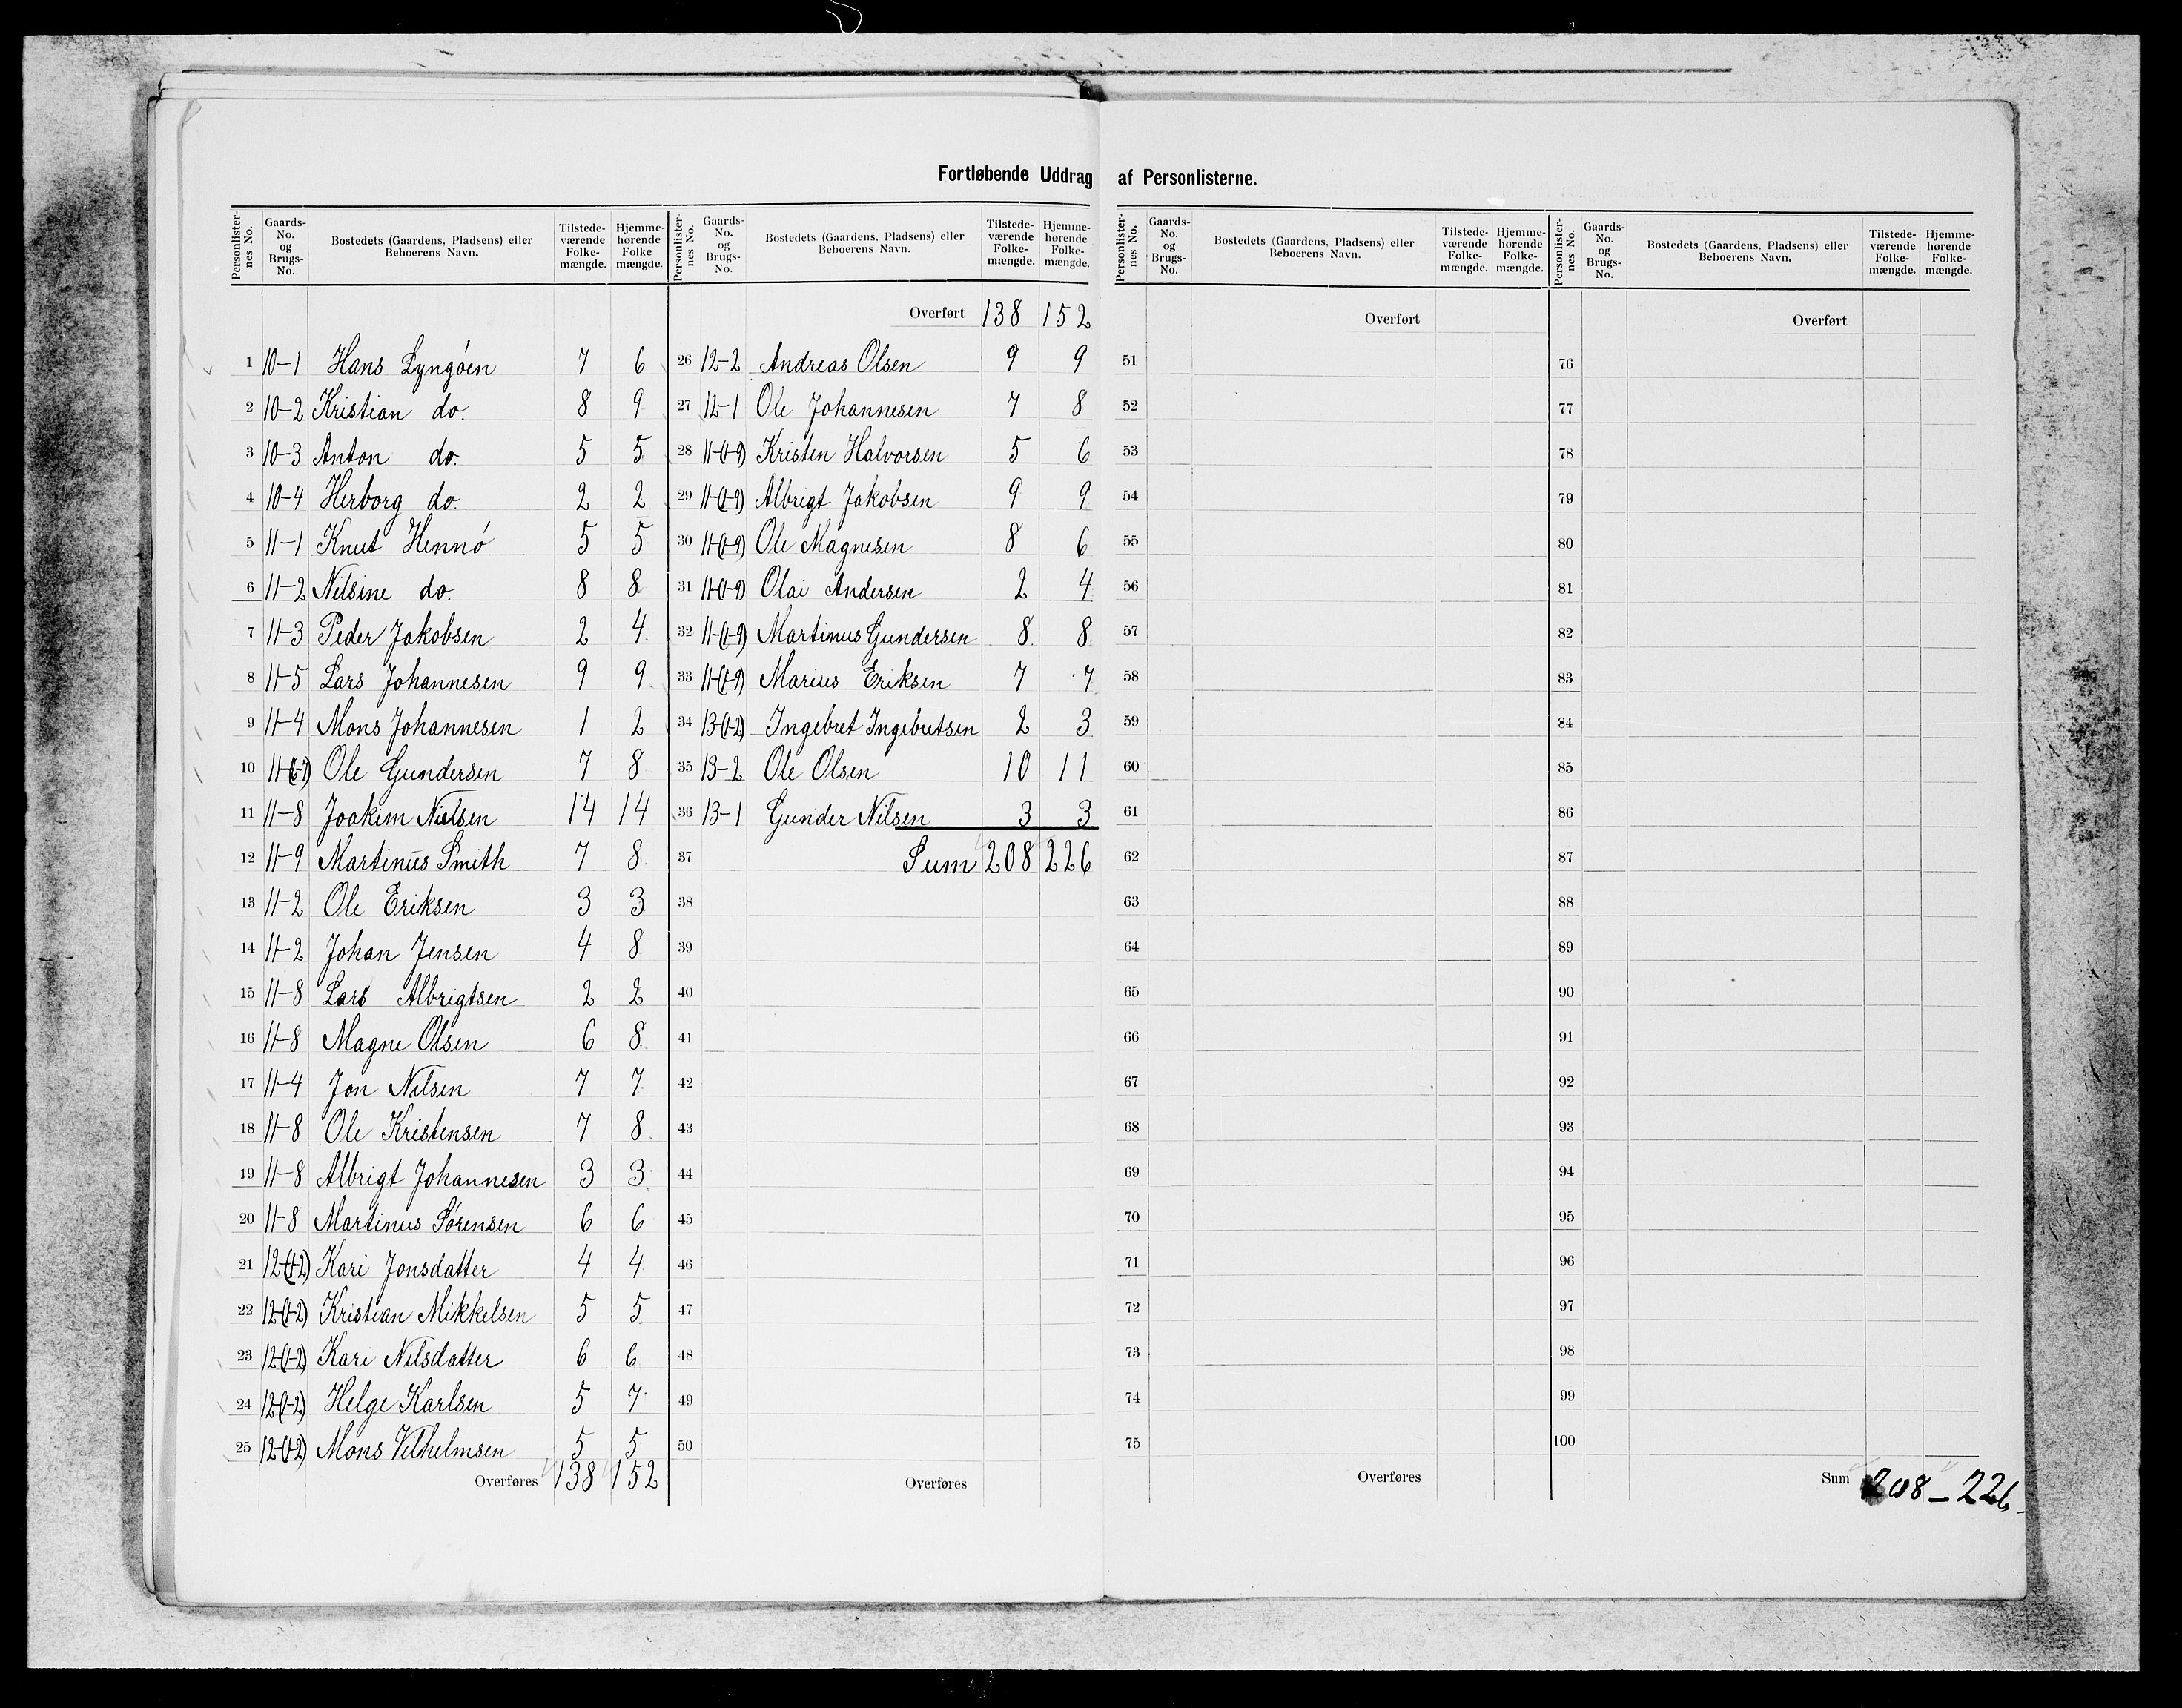 Fortløbende Uddrag af Personlisterne.
Personlister-nes No. Gaards-No. og Brugs-No. Bostedets (Gaardens, Pladsens) eller Beboerens Navn. Tilstede-værende Folke-mængde. Hjemme-hørende Folke mængde.
1 10-1 Hans Lyngöen 7 6
2 10-2 Kristian do. 8 9
3 10-3 Anton do. 5 5
4 10-4 Herborg do. 2 2
5 11-1 Knut Hennö 5 5
6 11-2 Nilsine do. 8 8
7 11-3 Peder Jakobsen 2 4
8 11-5 Lars Johannesen 9 9
9 11-4 Mons Johannesen 1 2
10 11-(6-7) Ole Gundersen 7 8
11 11-8 Joakim Nielsen 14 14
12 11-9 Martinus Smith 7 8
13 11-2 Ole Eriksen 3 3
14 11-2 Johan Jensen 4 8
15 11-8 Lars Albrigtsen 2 2
16 11-8 Magne Olsen 6 8
17 11-4 Jon Nilsen 7 7
18 11-8 Ole Kristensen 7 8
19 11-8 Albrigt Johannesen 3 3
20 11-8 Martinus Sörensen 6 6
21 12-(1-2) Kari Jonsdatter 4 4
22 12-(1-2) Kristian Mikkelsen 5 5
23 12-(1-2) Kari Nilsdatter 6 6
24 12-(1-2) Helge Karlsen 5 7
25 12-(1-2) Mons Vilhelmsen 5 5
Overføres 138 152
Personlister-nes No. Gaards-No. og Brugs-No. Bostedets (Gaardens, Pladsens) eller Beboerens Navn. Tilstede-værende Folke-mængde. Hjemme-hørende Folke-mængde.
Overført 138 152
26 12-2 Andreas Olsen 9 9
27 12-1 Ole Johannesen 7 8
28 11-(1-9) Kristen Halvorsen 5 6
29 11-(1-9) Albrigt Jakobsen 9 9
30 11-(1-9) Ole Magnesen 8 6
31 11-(1-9) Olai Andersen 2 4
32 11-(1-9) Martinus Gundersen 8 8
33 11-(1-9) Marius Eriksen 7 7
34 13-(1-2) Ingebret Ingebretsen 2 3
35 13-2 Ole Olsen 10 11
36 13-1 Gunder Nilsen 3 3
37 Sum 208 226
38
39
40
41
42
43
44
45
46
47
48
49
50
Overføres
Personlister-nes No. Gaards-No. og Brugs-No. Bostedets (Gaardens, Pladsens) eller Beboerens Navn. Tilstede-værende Folke-mængde. Hjemme-hørende Folke-mængde.
Overført
51
52
53
54
55
56
57
58
59
60
61
62
63
64
65
66
67
68
69
70
71
72
73
74
75
Overføres
Personlister-nes No. Gaards-No. og Brugs-No. Bostedets (Gaardens, Pladsens) eller Beboerens Navn. Tilstede-værende Folke-mængde. Hjemme-hørende Folke-mængde.
Overført
76
77
78
79
80
81
82
83
84
85
86
87
88
89
90
91
92
93
94
95
96
97
98
99
100
Sum 208-226